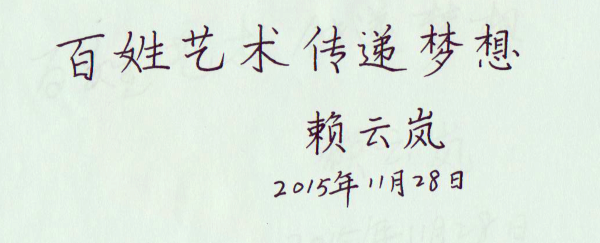 百姓艺术传递梦想
赖云岚
2015年11月28日